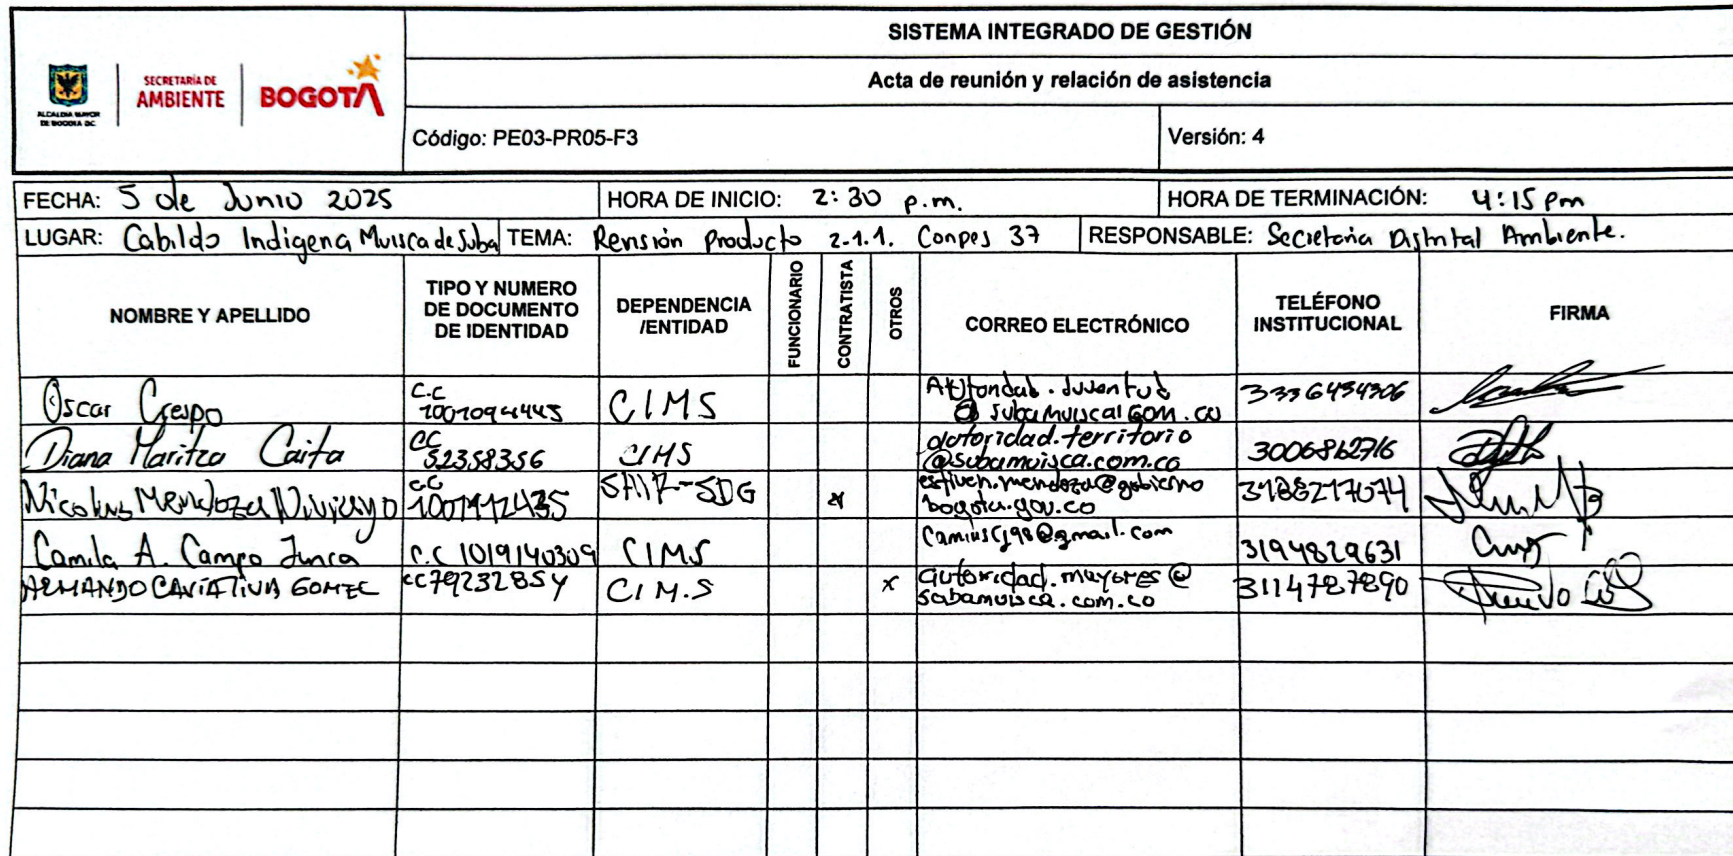 SISTEMA INTEGRADO DE GESTIÓN
ALCALDÍA MAYOR
DE BOGOTÁ D.C.
SECRETARÍA DE
AMBIENTE
BOGOTÁ
Acta de reunión y relación de asistencia
Código: PE03-PR05-F3
Versión: 4
FECHA: 5 de Junio 2025
HORA DE INICIO: 2:30 p.m.
HORA DE TERMINACIÓN: 4:15 pm
LUGAR: Cabildo Indigena Muisca de Suba
TEMA: Revisión producto 2.1.1. Conpes 37
RESPONSABLE: Secretaria Distrital Ambiente.
NOMBRE Y APELLIDO
TIPO Y NUMERO
DE DOCUMENTO
DE IDENTIDAD
DEPENDENCIA
/ENTIDAD
FUNCIONARIO
CONTRATISTA
OTROS
CORREO ELECTRÓNICO
TELÉFONO
INSTITUCIONAL
FIRMA
Oscar Crespo
C.C
CIMS
3336434306
Diana Maritza Caita
CC
52358356
CIMS
autoridad.territorio
@subamuisca.com.co
3006812716
Nicolas Mendoza
CC
SDG
x
estiven.mendoza@gobierno
bogota.gov.co
3188217074
Camila A. Campo Junca
C.C 1019140309
CIMS
3194829631
ARMANDO CAVIATIVA GOMEZ
CC 79232854
CIM.S
x
autoridad.mayores@
subamuisca.com.co
3114787890